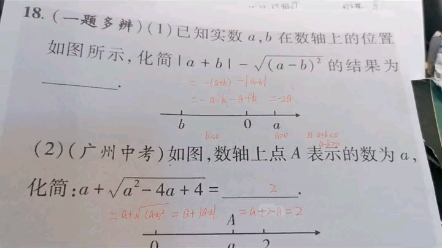 18.(一题多辨)(1)已知实数a,b在数轴上的位置
如图所示,化简|a+b|-√(a-b)²的结果为
.
= -(a+b) -|a-b|
= -a-b-a+b = -2a
b 0 a
b<0 a>0
(2)(广州中考)如图,数轴上点A表示的数为a,
化简:a+√a²-4a+4= 2 .
= a+2-a = 2
A
0 a 2